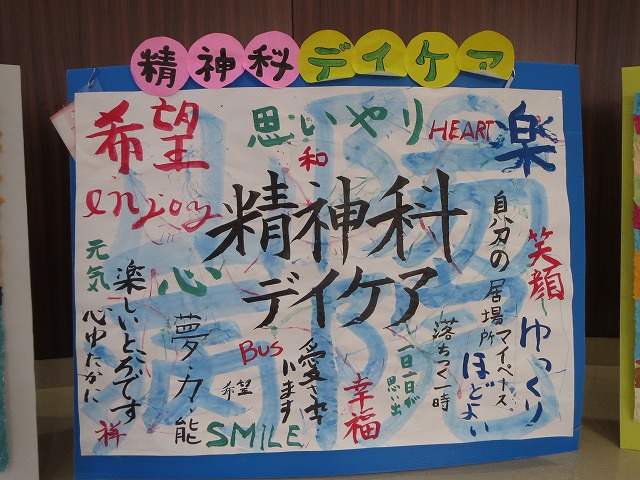 精神科デイケア
希望
思いやり
HEART
楽
和
enjoy
精神科
デイケア
自分の居場所
笑顔
元気
心
楽しいところです
心ゆたかに
夢・力・能
BUS
愛されています
一日一日が思い出
落ちつく一時
マイペース
ほどよい
ゆっくり
希望
幸福
祥
SMILE